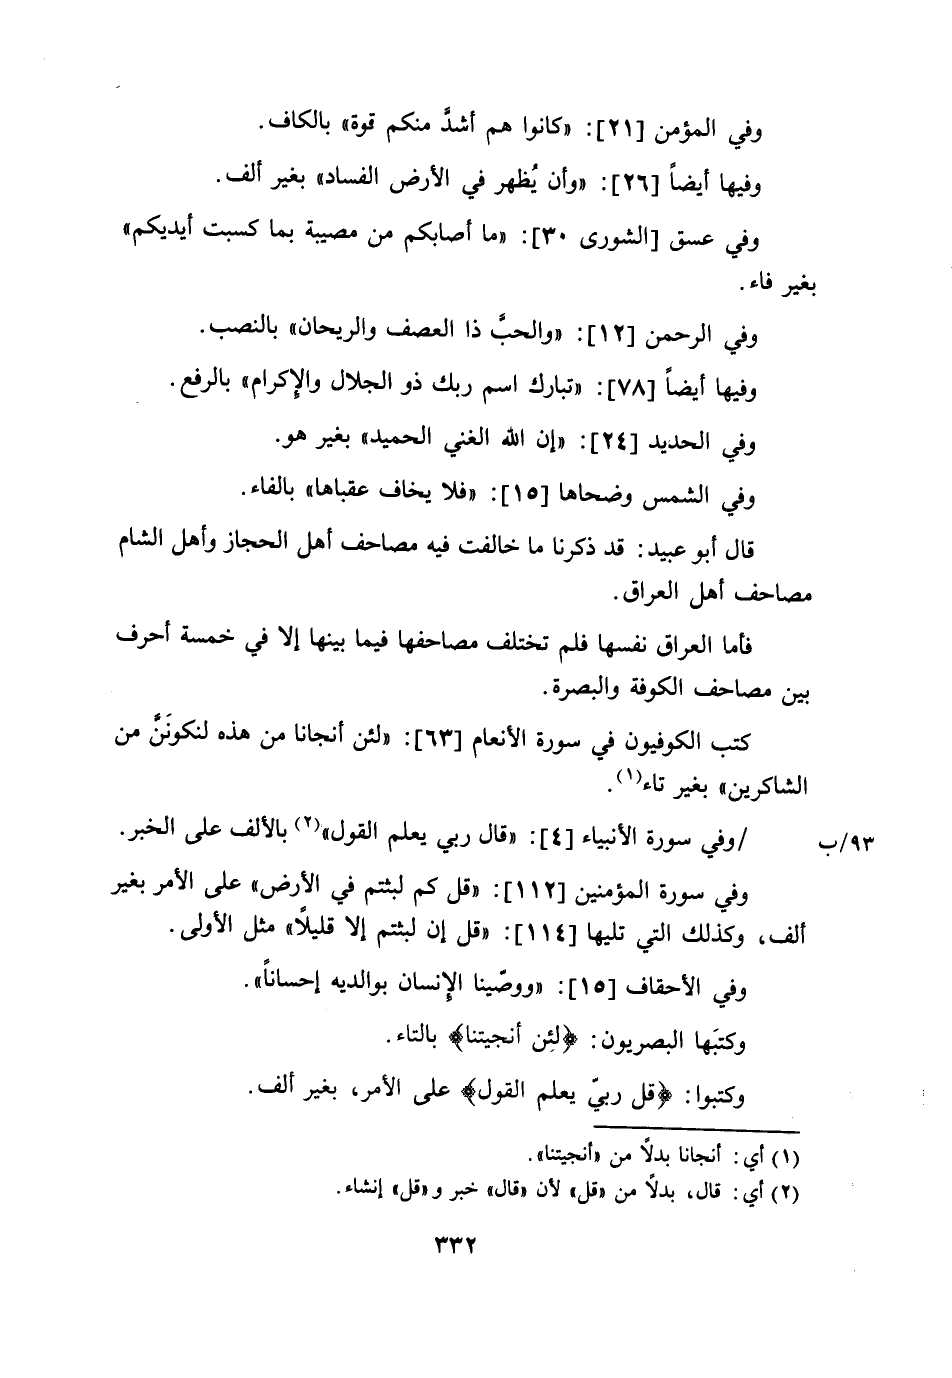 وفي المؤمن [٢١]: «كانوا هم أشدَّ منكم قوة» بالكاف.
وفيها أيضاً [٢٦]: «وأن يُظهر في الأرض الفساد» بغير ألف.
وفي عسق [الشورى ٣٠]: «ما أصابكم من مصيبة بما كسبت أيديكم»
بغير فاء.
وفي الرحمن [١٢]: «والحبَّ ذا العصف والريحان» بالنصب.
وفيها أيضاً [٧٨]: «تبارك اسم ربك ذو الجلال والإكرام» بالرفع.
وفي الحديد [٢٤]: «إن الله الغني الحميد» بغير هو.
وفي الشمس وضحاها [١٥]: «فلا يخاف عقباها» بالفاء.
قال أبو عبيد: قد ذكرنا ما خالفت فيه مصاحف أهل الحجاز وأهل الشام
مصاحف أهل العراق.
فأما العراق نفسها فلم تختلف مصاحفها فيما بينها إلا في خمسة أحرف
بين مصاحف الكوفة والبصرة.
كتب الكوفيون في سورة الأنعام [٦٣]: «لئن أنجانا من هذه لنكونَنَّ من
الشاكرين» بغير تاء(١).
٩٣/ب /وفي سورة الأنبياء [٤]: «قال ربي يعلم القول»(٢) بالألف على الخبر.
وفي سورة المؤمنين [١١٢]: «قل كم لبثتم في الأرض» على الأمر بغير
ألف، وكذلك التي تليها [١١٤]: «قل إن لبثتم إلا قليلًا» مثل الأولى.
وفي الأحقاف [١٥]: «ووصّينا الإنسان بوالديه إحساناً».
وكتبَها البصريون: ﴿لئِن أنجيتنا﴾ بالتاء.
وكتبوا: ﴿قل ربيّ يعلم القول﴾ على الأمر، بغير ألف.
(١) أي: أنجانا بدلًا من «أنجيتنا».
(٢) أي: قال، بدلًا من «قل» لأن «قال» خبر و«قل» إنشاء.
٣٣٢